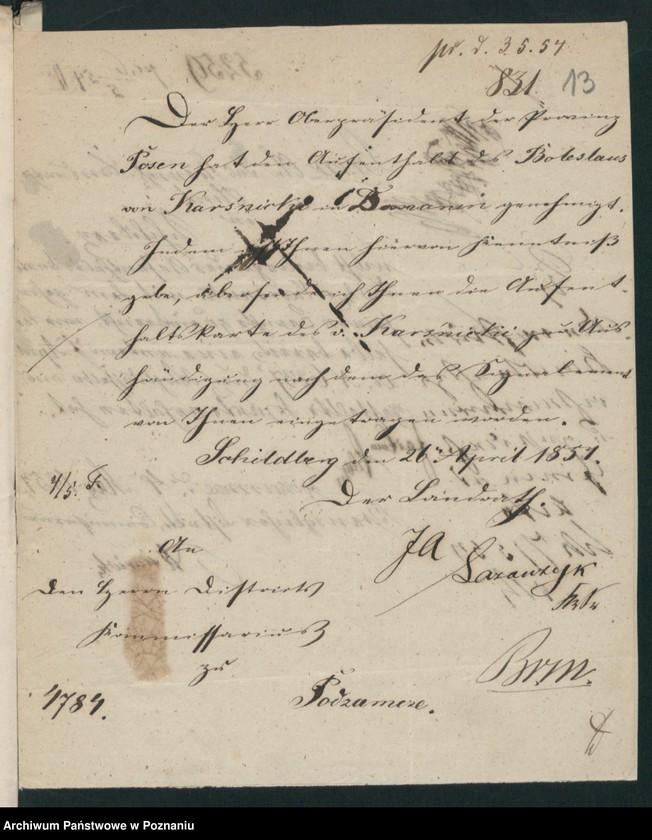 pr. d. 3.5.57
831. 13
Der Herr Oberpräsident der Provinz
Posen hat den Aufenthalt des Boleslaus
von Karśnicki in genehmigt.
Indem ich Ihnen hiervon Kenntniß
gebe, übersende ich Ihnen die Aufent-
haltskarte des v. Karśnicki zur Aus-
händigung nachdem das Signalement
von Ihnen eingetragen worden.
Schildberg den 26 April 1857.
Der Landrath
4/5. F.
An
den Herrn Districts
Kommissarius
zu
Podzamcze.
JA
Lazawzyk
4784.
Brm.
Archiwum Państwowe w Poznaniu